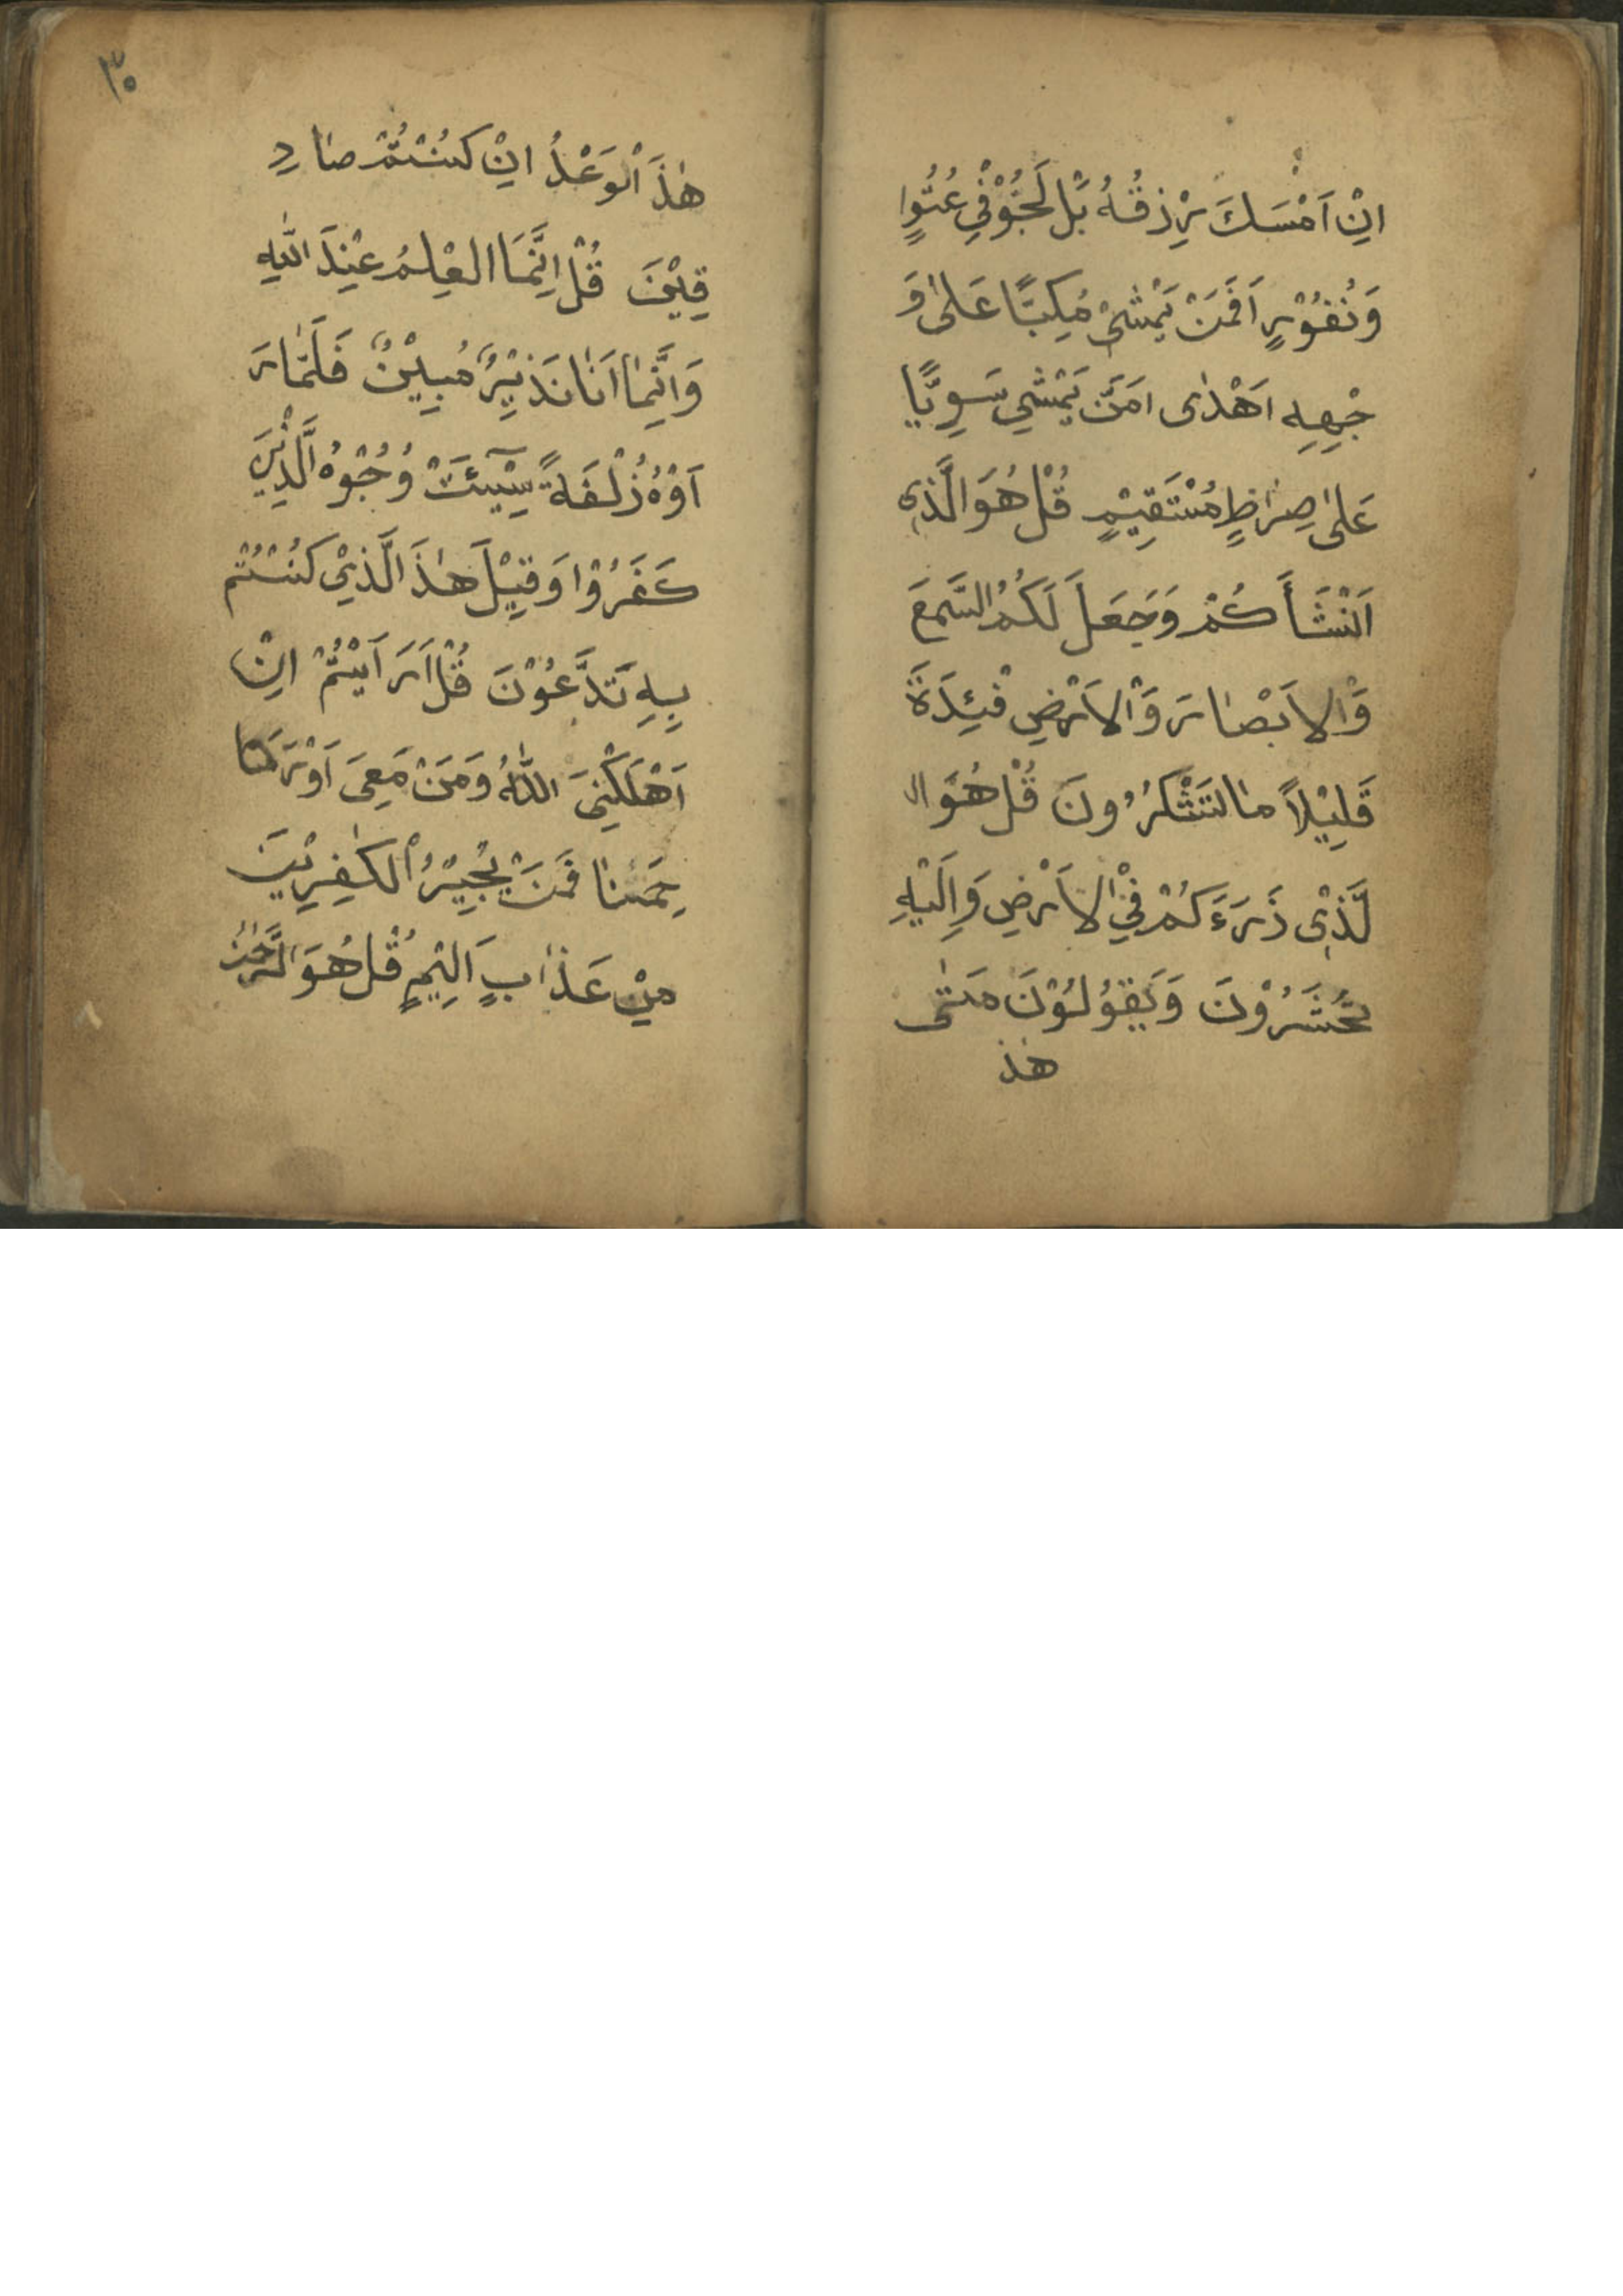 اِنْ اَمْسَكَ رِزْقُهُ بَلْ لَجُّوْ فِي عُتُوٍّا
وَنُفُوْرٍ اَفَمَنْ يَمْشِىْ مُكِبًّا عَلىٰ وَ
جْهِهِ اَهْدٰى اَمَّنْ يَمْشِي سَوِيًّا
عَلىٰ صِرٰاطٍ مُسْتَقِيْمٍ قُلْ هُوَ الَّذِى
اَنْشَأَ كُمْ وَجَعَلَ لَكُمُ السَّمعَ
وَْالاَبْصٰارَ وَْالاَرْضِ فْئِدَةَ
قَلِيْلاً مٰا لتَشْكُرُونَ قُلْ هُوَ ا
لَّذِى ذَرَءَكُمْ فِيْ الاَرْضِ وَاِلَيْهِ
تُحْشَرُوْنَ وَيَقُوْلُوْنَ مَتٰى
هٰذَ
٣٥
هٰذَ اْلوَعْدُ اِنْ كُنْتُمْ صٰادِ
قِيْنَ قُلْ اِنَّمَا العْلِمُ عِنْدَ اللّٰهِ
وَاِنَّمٰا اَنَا نَذِيْرٌ مُبِيْنٌ فَلَمّٰا رَ
اَوْهُ زُلْفَةً سِيْٓئَتْ وُجُوْهُ الَّذِيْنَ
كَفَرُوْا وَقِيْلَ هٰذَ الَّذِيْ كُنْتُمْ
بِهِ تَدَّعُوْنَ قُلْ اَرَاَيْتُمْ اِنْ
اَهْلَكَنِىَ اللّٰهُ وَمَنْ مَعِىَ اَوْ رَ
حِمَنٰا فَمَنْ يُجِيْرُ اْلكٰفِرِيْنَ
مِنْ عَذٰابٍ اَلِيْمٍ قُلْ هُوَ الرَّحْمٰنُ